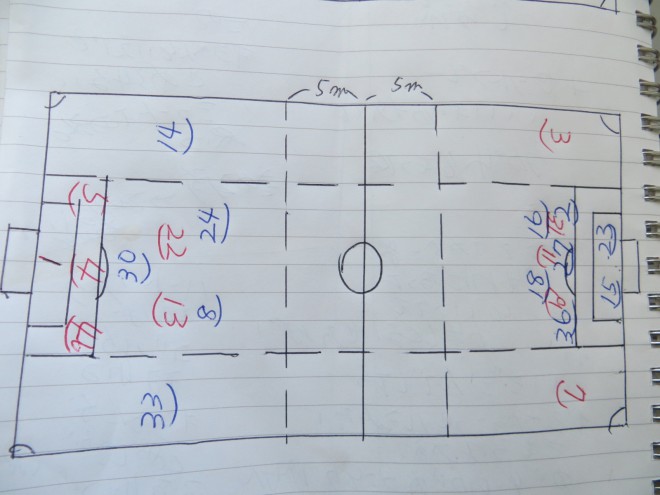 5m 5m
14
3
5
24
22
16
2
23
30
4
11
8
13
18
15
36
33
7